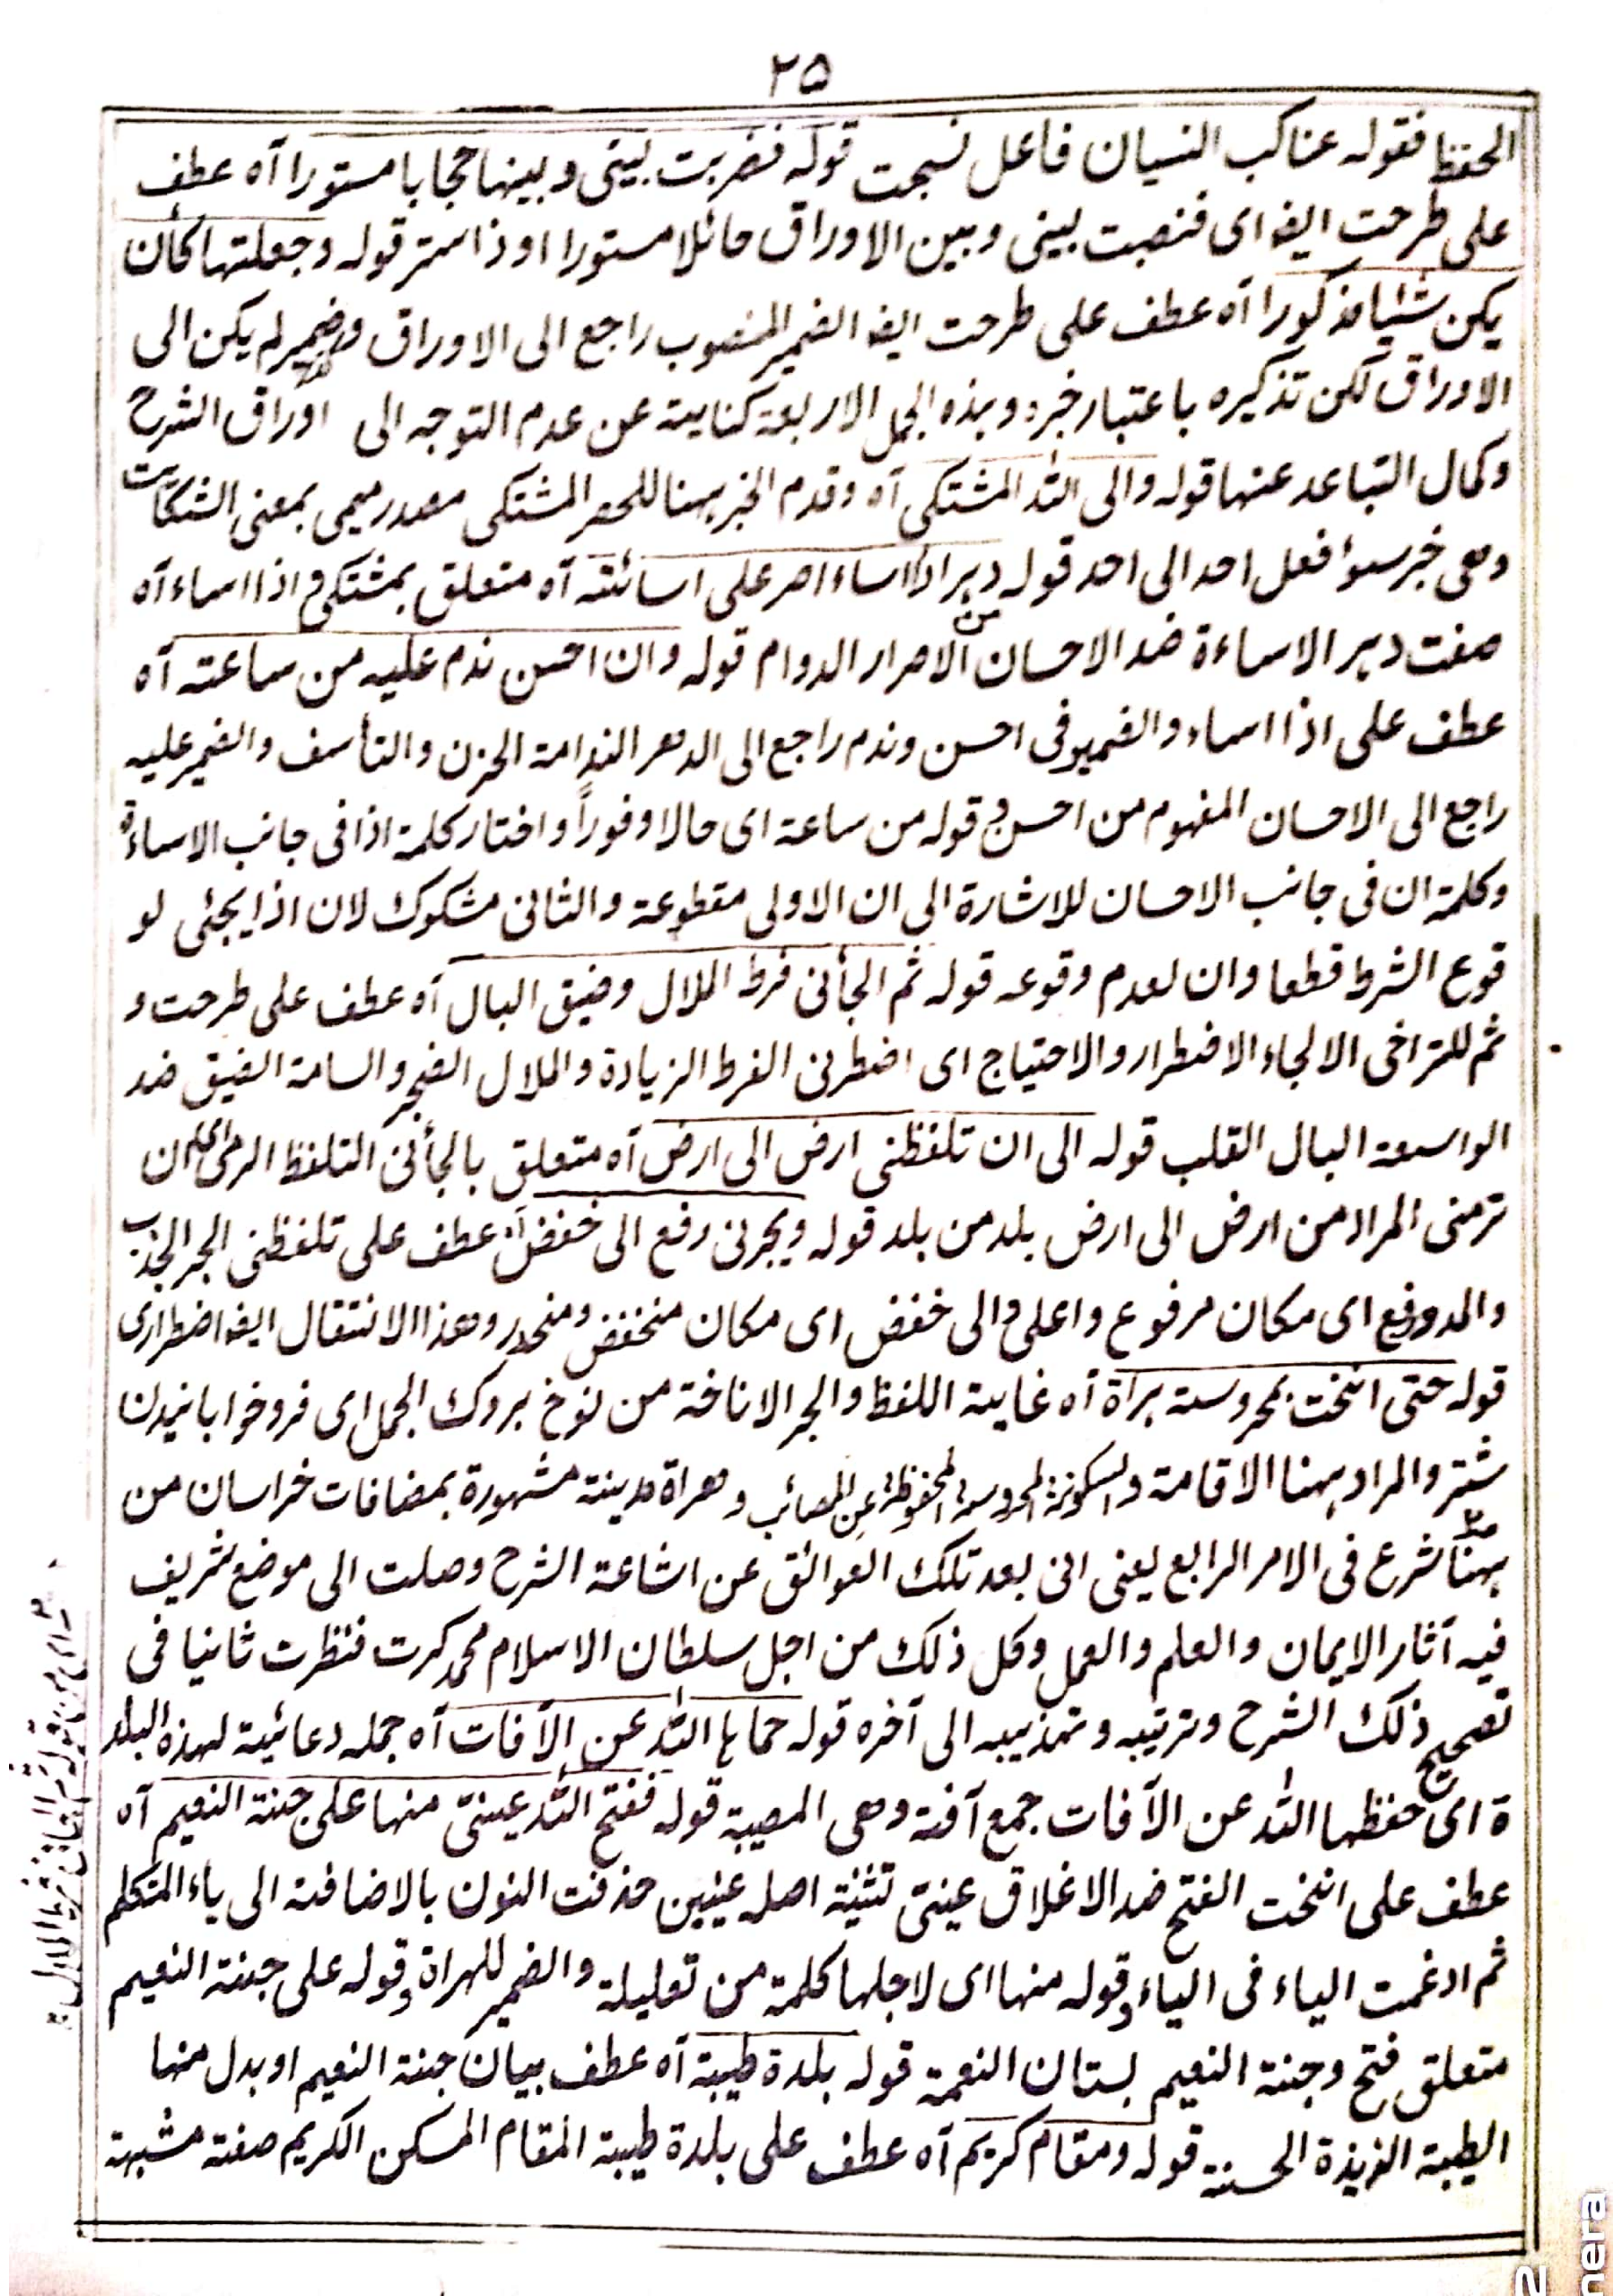 ٢٥
الحفظ فقوله عناكب النسيان فاعل نسجت قوله فضربت بينى وبينها حجابا مستورا آه عطف
على طرحت ايضا اى فنصبت بينى وبين الاوراق حائلا مستورا او ذا ستر قوله وجعلتها كأن
يكن شئيا مذكورا آه عطف على طرحت ايضا الضمير المنصوب راجع الى الاوراق وضمير لم يكن الى
الاوراق لكن تذكيره باعتبار خبره وهذه الجمل الاربعة كناية عن عدم التوجه الى اوراق الشرح
وكمال التباعد عنها قوله والى الله المشتكى آه وقدم الخبر ههنا للحصر المشتكى مصدر ميمى بمعنى الشكايت
وهى خبر سوأ فعل احد الى احد قوله دهر اذا اساء اصر على اسائته آه متعلق بمشتكى و اذا اساء آه
صفت دهر الاساءة ضد الاحسان الاصرار الدوام قوله وان احسن ندم عليه من ساعته آه
عطف على اذا اساء والضمير فى احسن وندم راجع الى الدهر الندامة الحزن والتأسف والضمير عليه
راجع الى الاحسان المفهوم من احسن و قوله من ساعة اى حالا وفوراً واختار كلمة اذا فى جانب الاساءة
وكلمة ان فى جانب الاحسان للاشارة الى ان الاولى مقطوعة والثانى مشكوك لان اذا يجئى لو
قوع الشرط قطعا وان لعدم وقوعه قوله ثم الجأنى فرط الملال وضيق البال آه عطف على طرحت و
ثم للتراخى الالجاء الاضطرار والاحتياج اى اضطرنى الفرط الزيادة والملال الضجر والسامة الضيق ضد
الواسعة البال القلب قوله الى ان تلفظنى ارض الى ارض آه متعلق بالجأنى التلفظ الرمى اى الى ان
ترمنى المراد من ارض الى ارض بلد من بلد قوله ويجرنى رفع الى خفض آه عطف على تلفظنى الجر الجذب
والمد و رفع اى مكان مرفوع واعلى و الى خفض اى مكان منخفض ومنحدر وهذا الانتقال ايضا اضطرارى
قوله حتى انخت بمحروسة هراة آه غاية اللفظ والجر الاناخة من نوخ بروك الجمل اى فروخوابانيدن
شتر والمراد ههنا الاقامة والسكونة المحروسة المحفوظة عن المصائب وهراة مدينة مشهورة بمضافات خراسان من
ههنا شرع فى الامر الرابع يعنى انى بعد تلك العوائق عن اشاعة الشرح وصلت الى موضع شريف
فيه آثار الايمان والعلم والعمل وكل ذلك من اجل سلطان الاسلام محمد كرت فنظرت ثانيا فى
تصحيح ذلك الشرح وترتيبه وتهذيبه الى آخره قوله حماها الله عن الآفات آه جمله دعائية لهذه البلد
ة اى حفظها الله عن الآفات جمع آفة وهى المصيبة قوله ففتح الله عينىّ منها على جنة النعيم آه
عطف على انخت الفتح ضد الاغلاق عينىّ تثنية اصله عينين حذفت النون بالاضافة الى ياء المتكلم
ثم ادغمت الياء فى الياء و قوله منها اى لاجلها كلمة من تعليلة والضمير للهراة و قوله على جنة النعيم
متعلق فتح وجنة النعيم بستان النعمة قوله بلدة طيبة آه عطف بيان جنة النعيم او بدل منها
الطيبة الزيذة الحسنة قوله ومقام كريم آه عطف على بلدة طيبة المقام المسكن الكريم صفة مشبهة